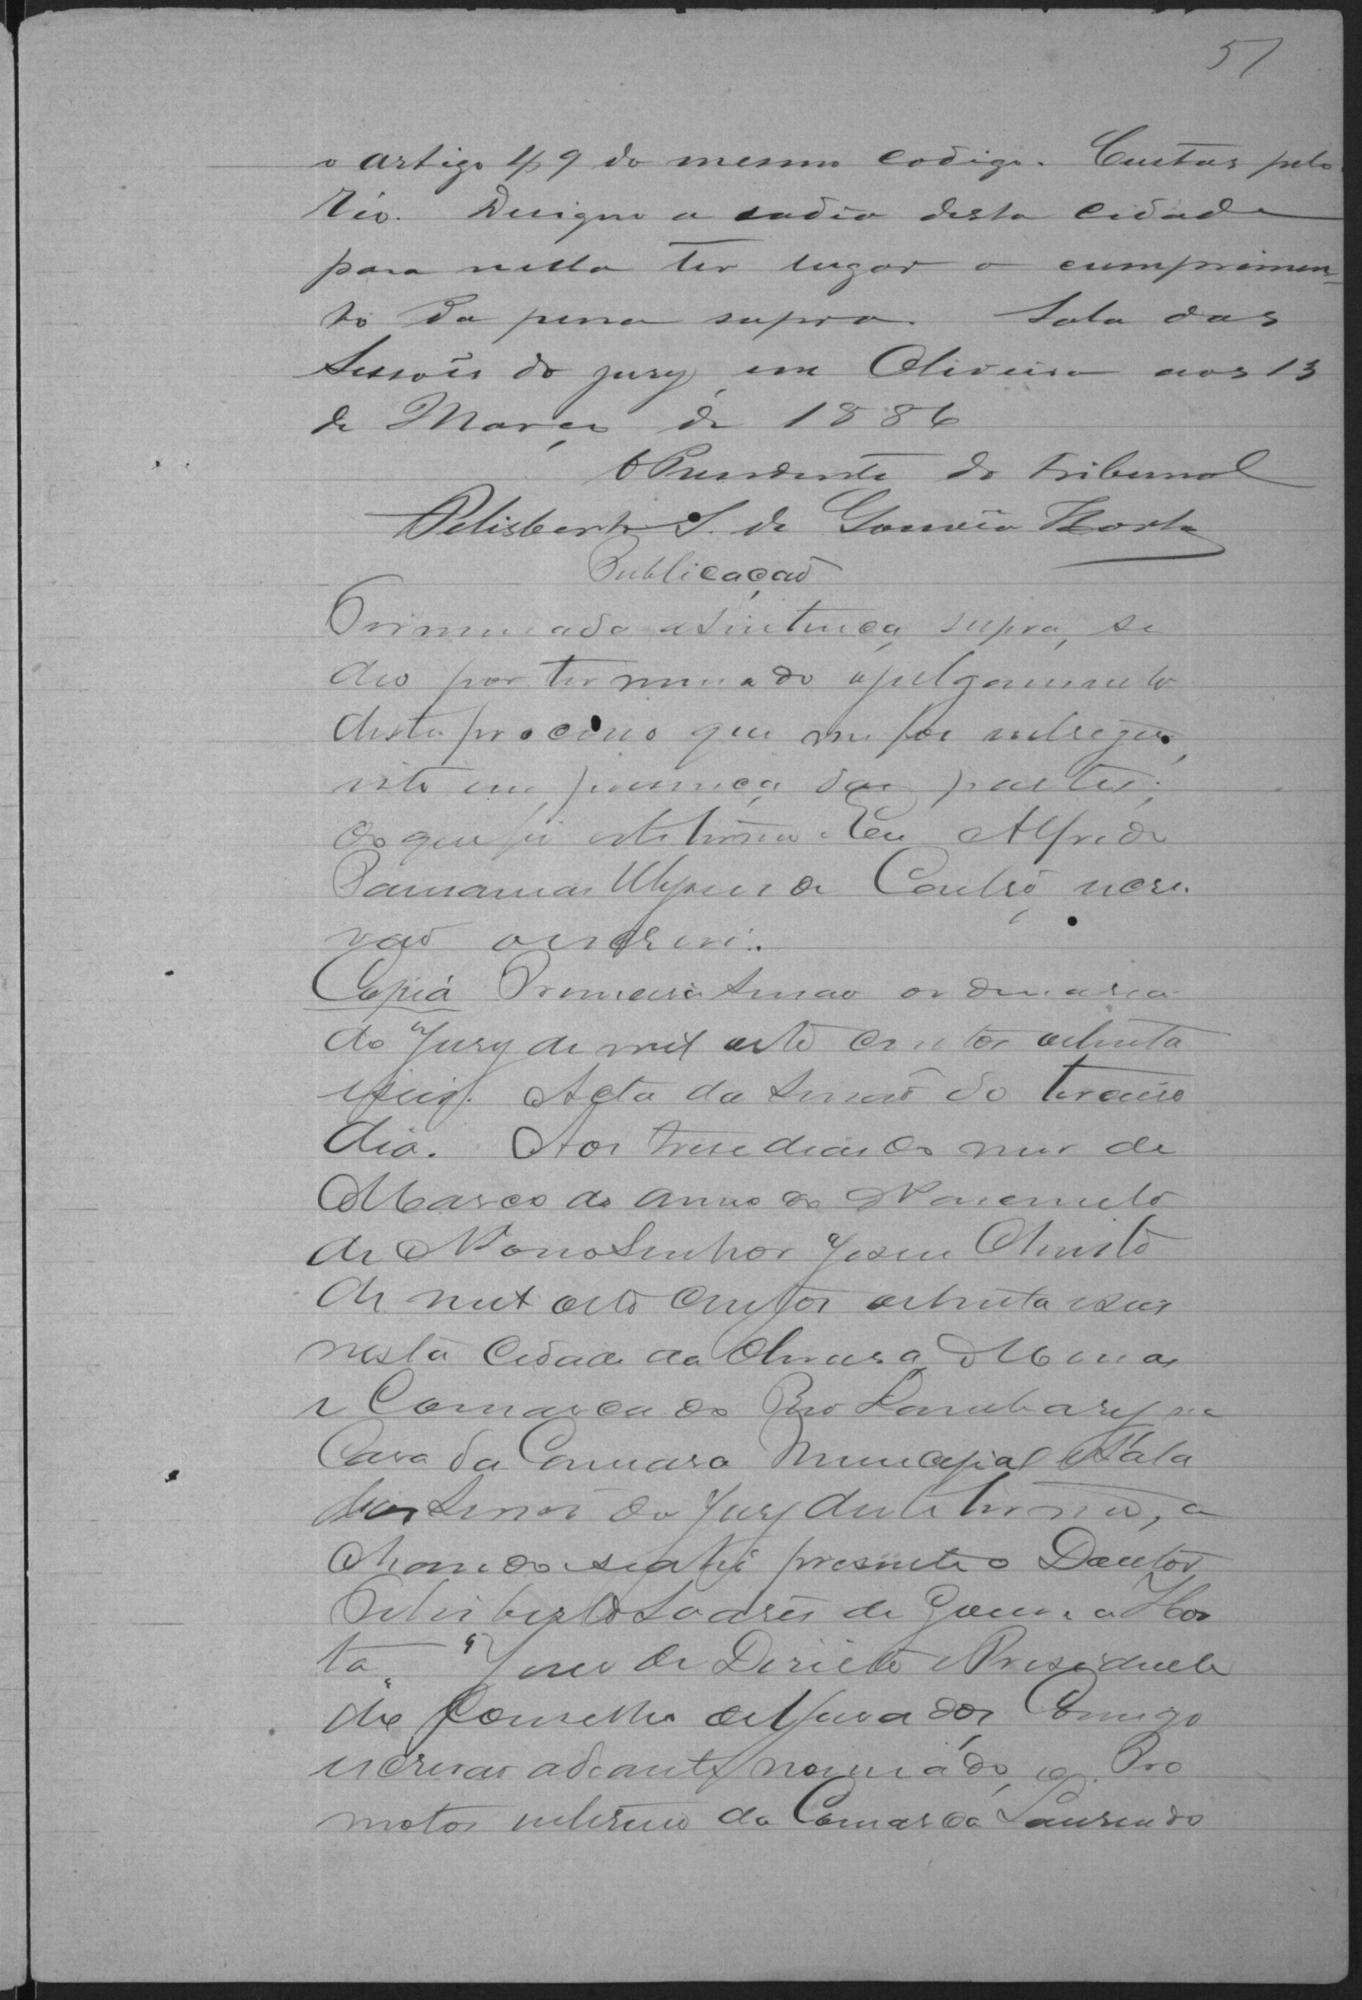 51
o artigo 49 do mesmo codigo. Custas pelo
réo. Designo a cadêa desta cidade
para nella ter lugar o cumprimen-
to da pena supra. Sala das
Sessões do jury, em Oliveira aos 13
de Março de 1886
O Presidente do Tribunal
Felisberto S. de Gouvêa Horta
Publicação
a sintença supra, se
deo por terminado o julgamento
deste processo que me foi entregue
isto em presença das partes;
do que fiz este termo. Eu Alfredo
Ulysses de Castro, escri-
vão o escrevi.
Copia Primeira Sessão ordinaria
do Jury de mil oito centos oitenta
e seis. Acta da Sessão do terceiro
dia. Aos trese dias do mez de
Março do anno do Nascimento
de Nosso Senhor Jesus Christo
de mil oito centos oitenta e seis
nesta Cidade da Oliveira de Minas
e Comarca do Rio Lambary na
Casa da Camara Municipal e Sala
das Sessões do Jury deste termo, a
chando se ahi presente o Doutor
Felisberto Soares de Gouvea Hor
ta, Juiz de Direito e Presidente
do Conselho de Jurados, Comigo
escrivão adiante nomeado, e o Pro
motor interino da Comarca Laurindo